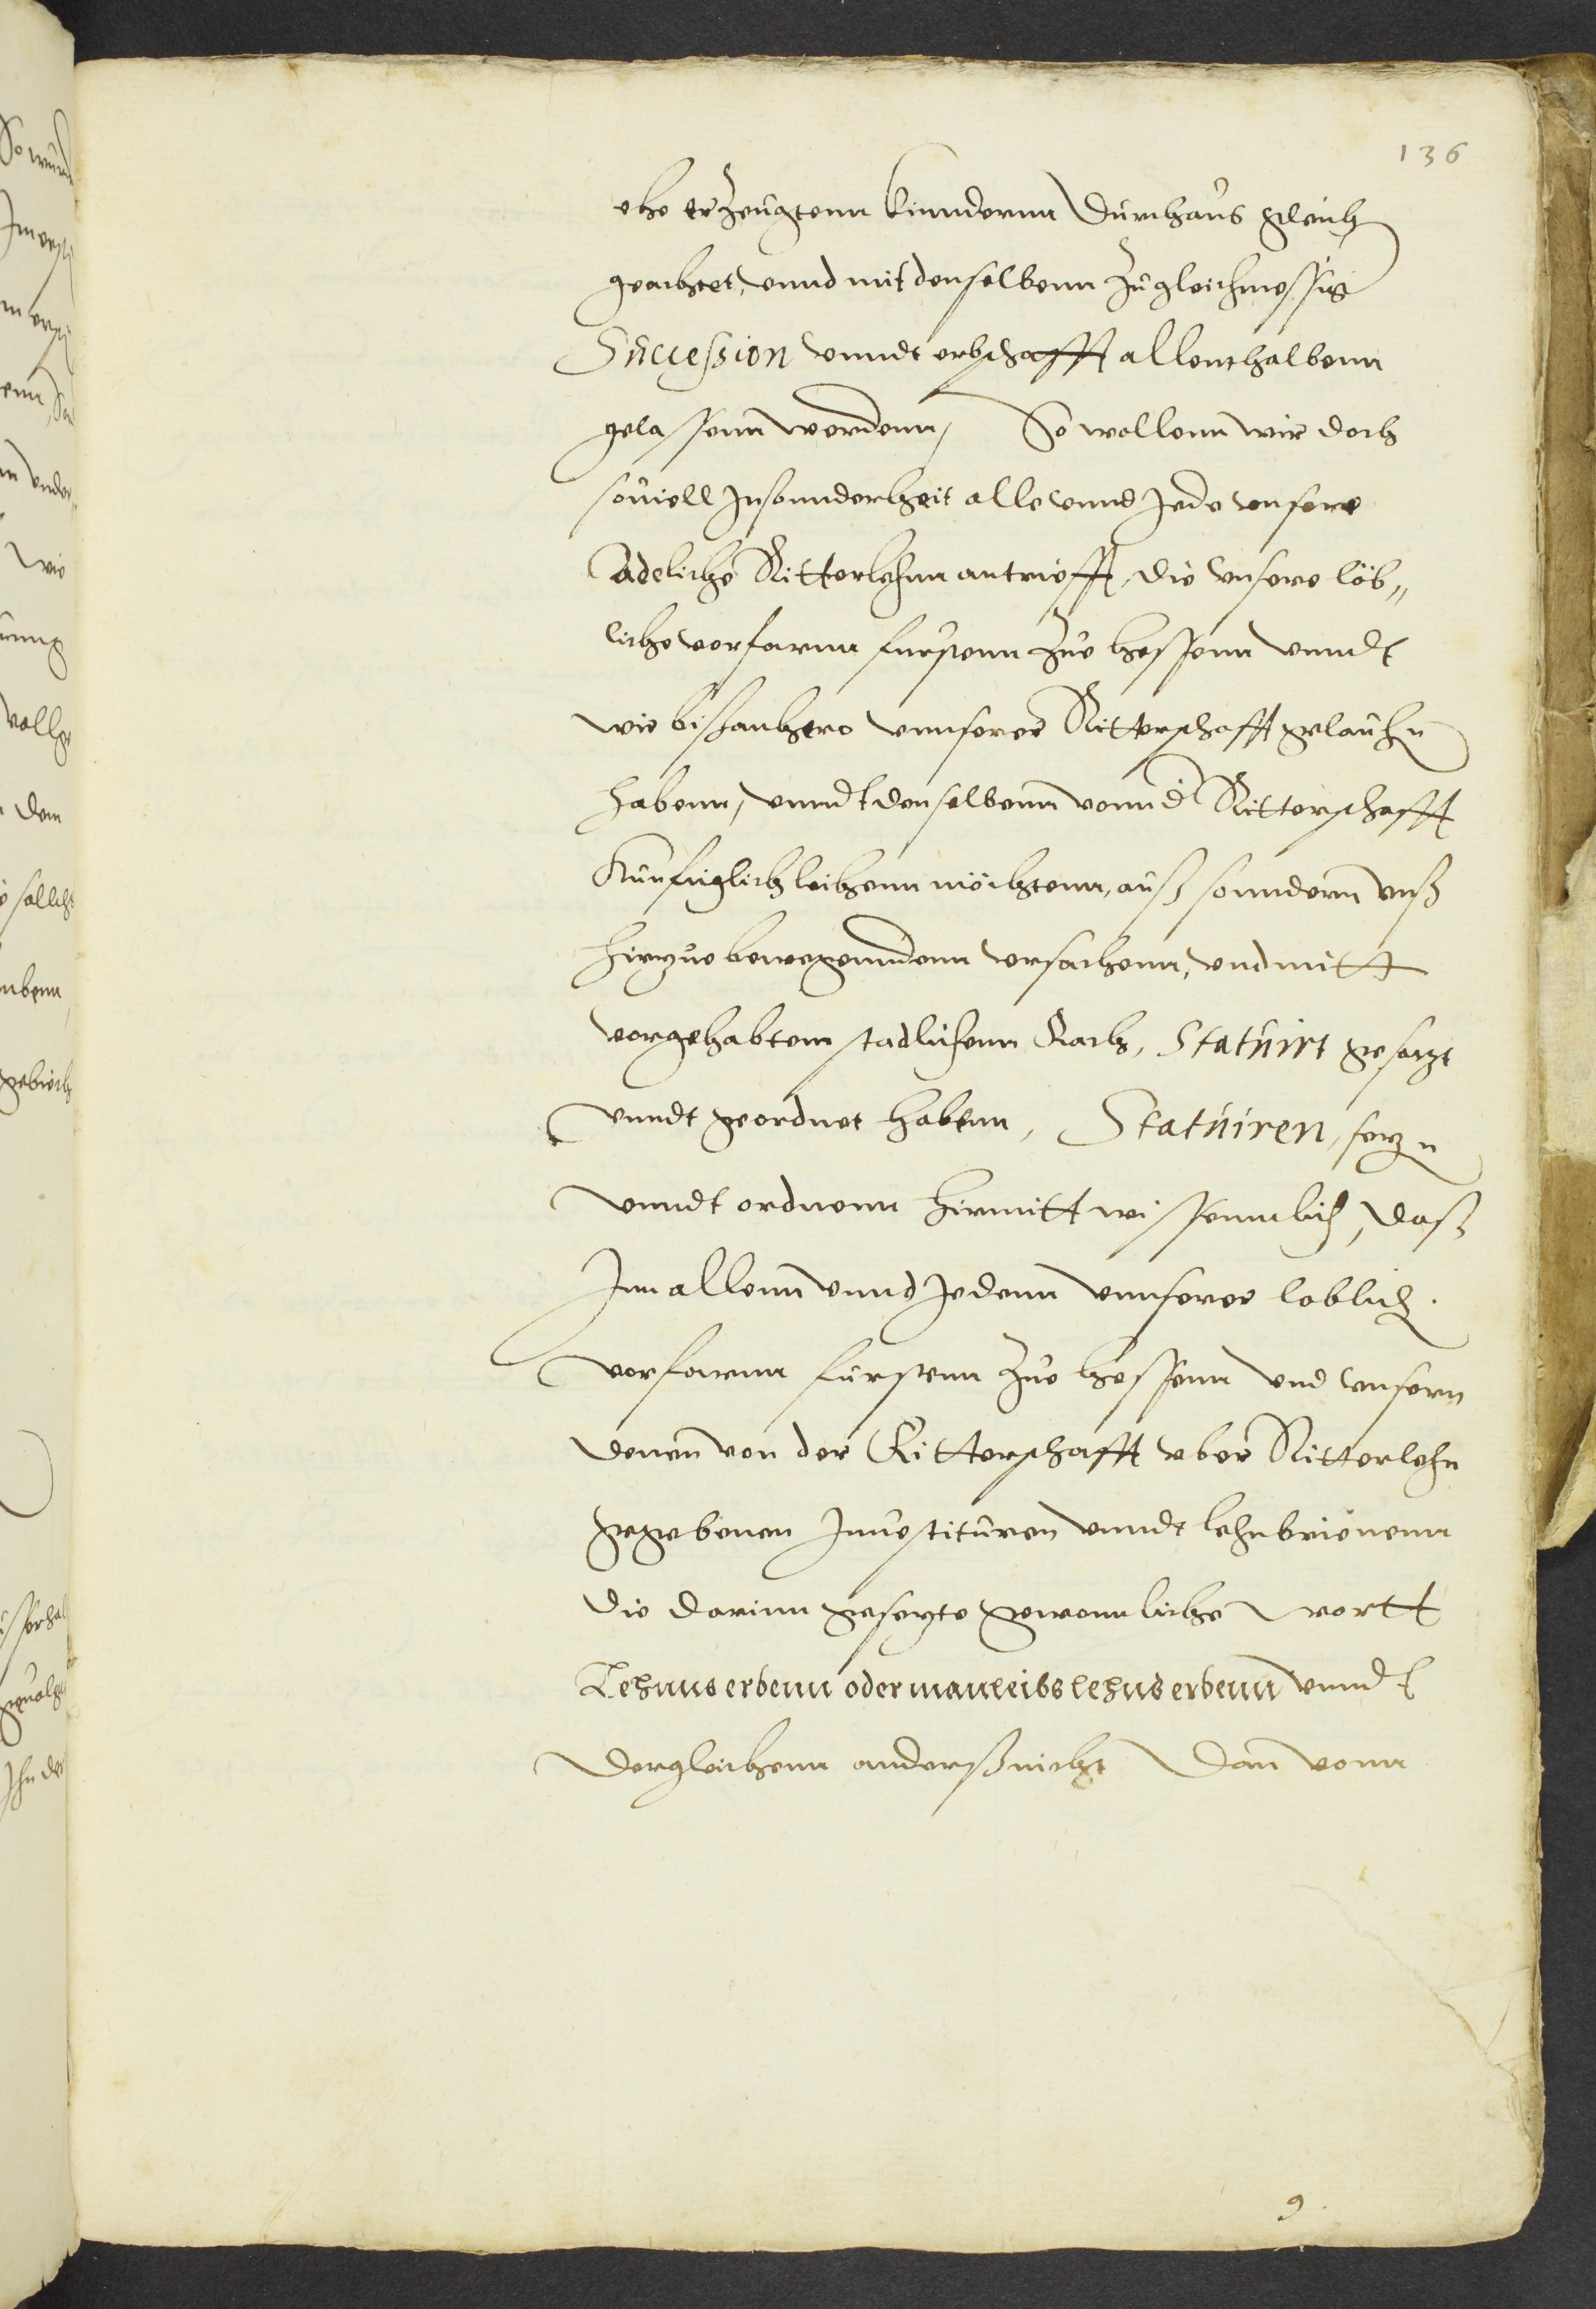 136
ehe erzeugtenn kinndernn durchaus gleich
geachtet, unnd mit denselbenn zu gleichmessig
Succession unndt erbschafft allenthalbenn
gelassenn werdenn, So wollenn wir doch
souiell Insonnderheit alle unnd Jede unsere
Adeliche Ritterlehnn antriefft, die unsere löb„
liche vorfarnn fursten zue hessenn unndt
wir bißanhero unnserer Ritterschafft geliauhen
habenn, unndt denselbenn vonn d Ritterschafft
Kunfftiglich leihenn möchtenn, auß sonndernn unß
hierzue bewegenndenn ursachenn, und mitt
vorgehabtem stadlichenn Rath, Statuirt gesetzt
unndt geordnet habenn, Statuiren, setzn
unndt ordnenn hiermitt wissenntlich, daß
Inn allenn unnd Jedenn unnserer loblich.
vorfarnn furstenn zue hessenn und unsern
denen von der Ritterschafft uber Ritterlehn
gegebenen Inuestituren unndt lehnbrieuenn
die darinn gesetzte gewonnliche wortt
Lehnnserbenn oder manleibslehnserbenn unndt
dergleichenn anderß nicht dan vonn
9